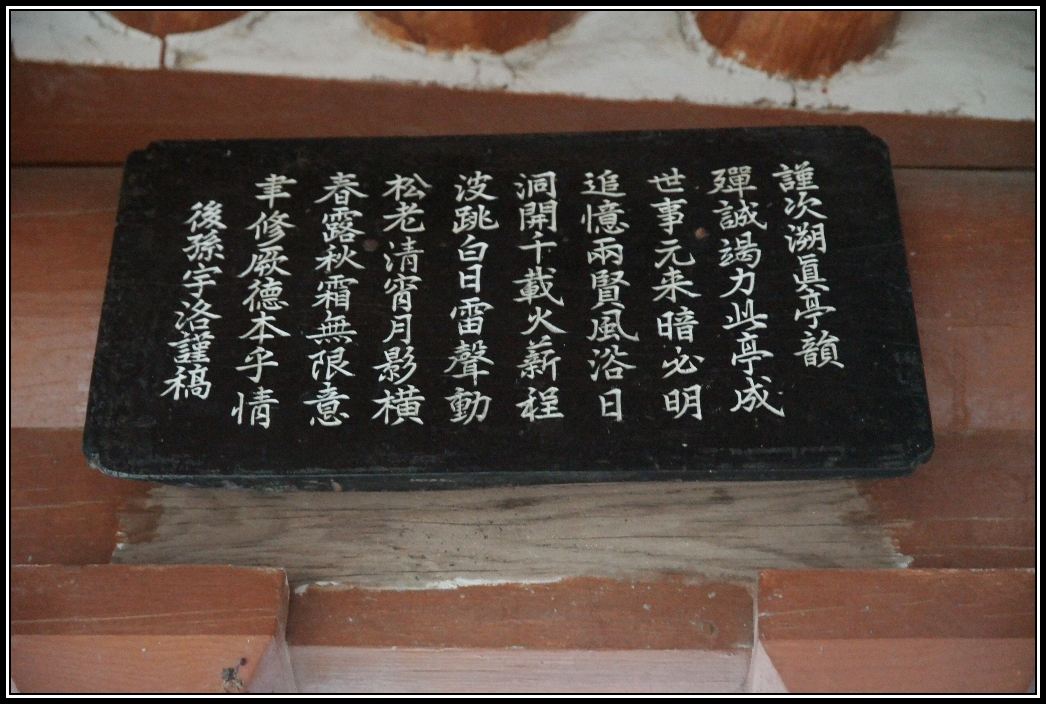 謹次溯眞亭韻
殫誠竭力此亭成
世事元来暗必明
追憶兩賢風浴日
洞開千載火薪程
波跳白日雷聲動
松老清宵月影橫
春露秋霜無限意
聿修厥德本乎情
後孫宇洛謹稿